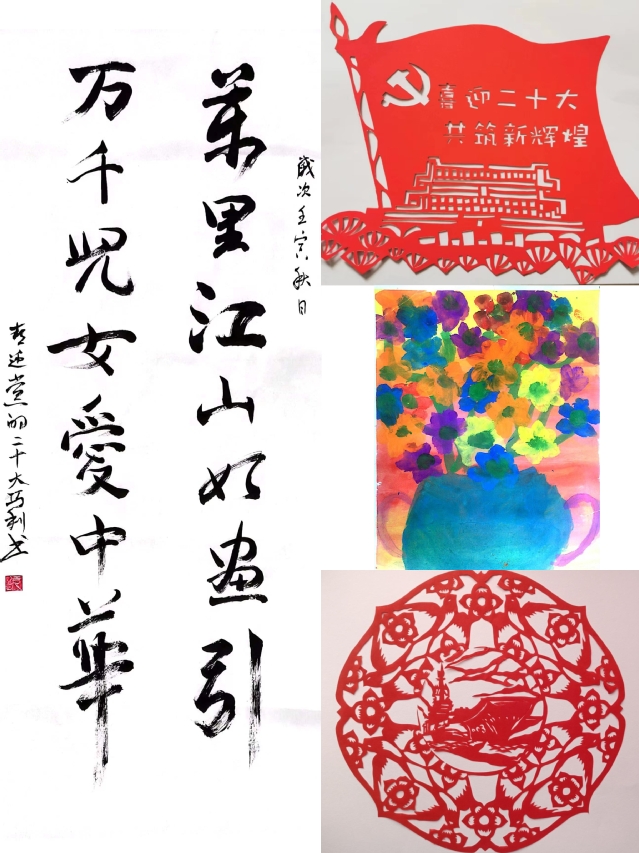 歲次壬寅秋日
萬里江山如畫引
万千兒女愛中華
喜迎党的二十大巧利书
喜迎二十大
共筑新辉煌